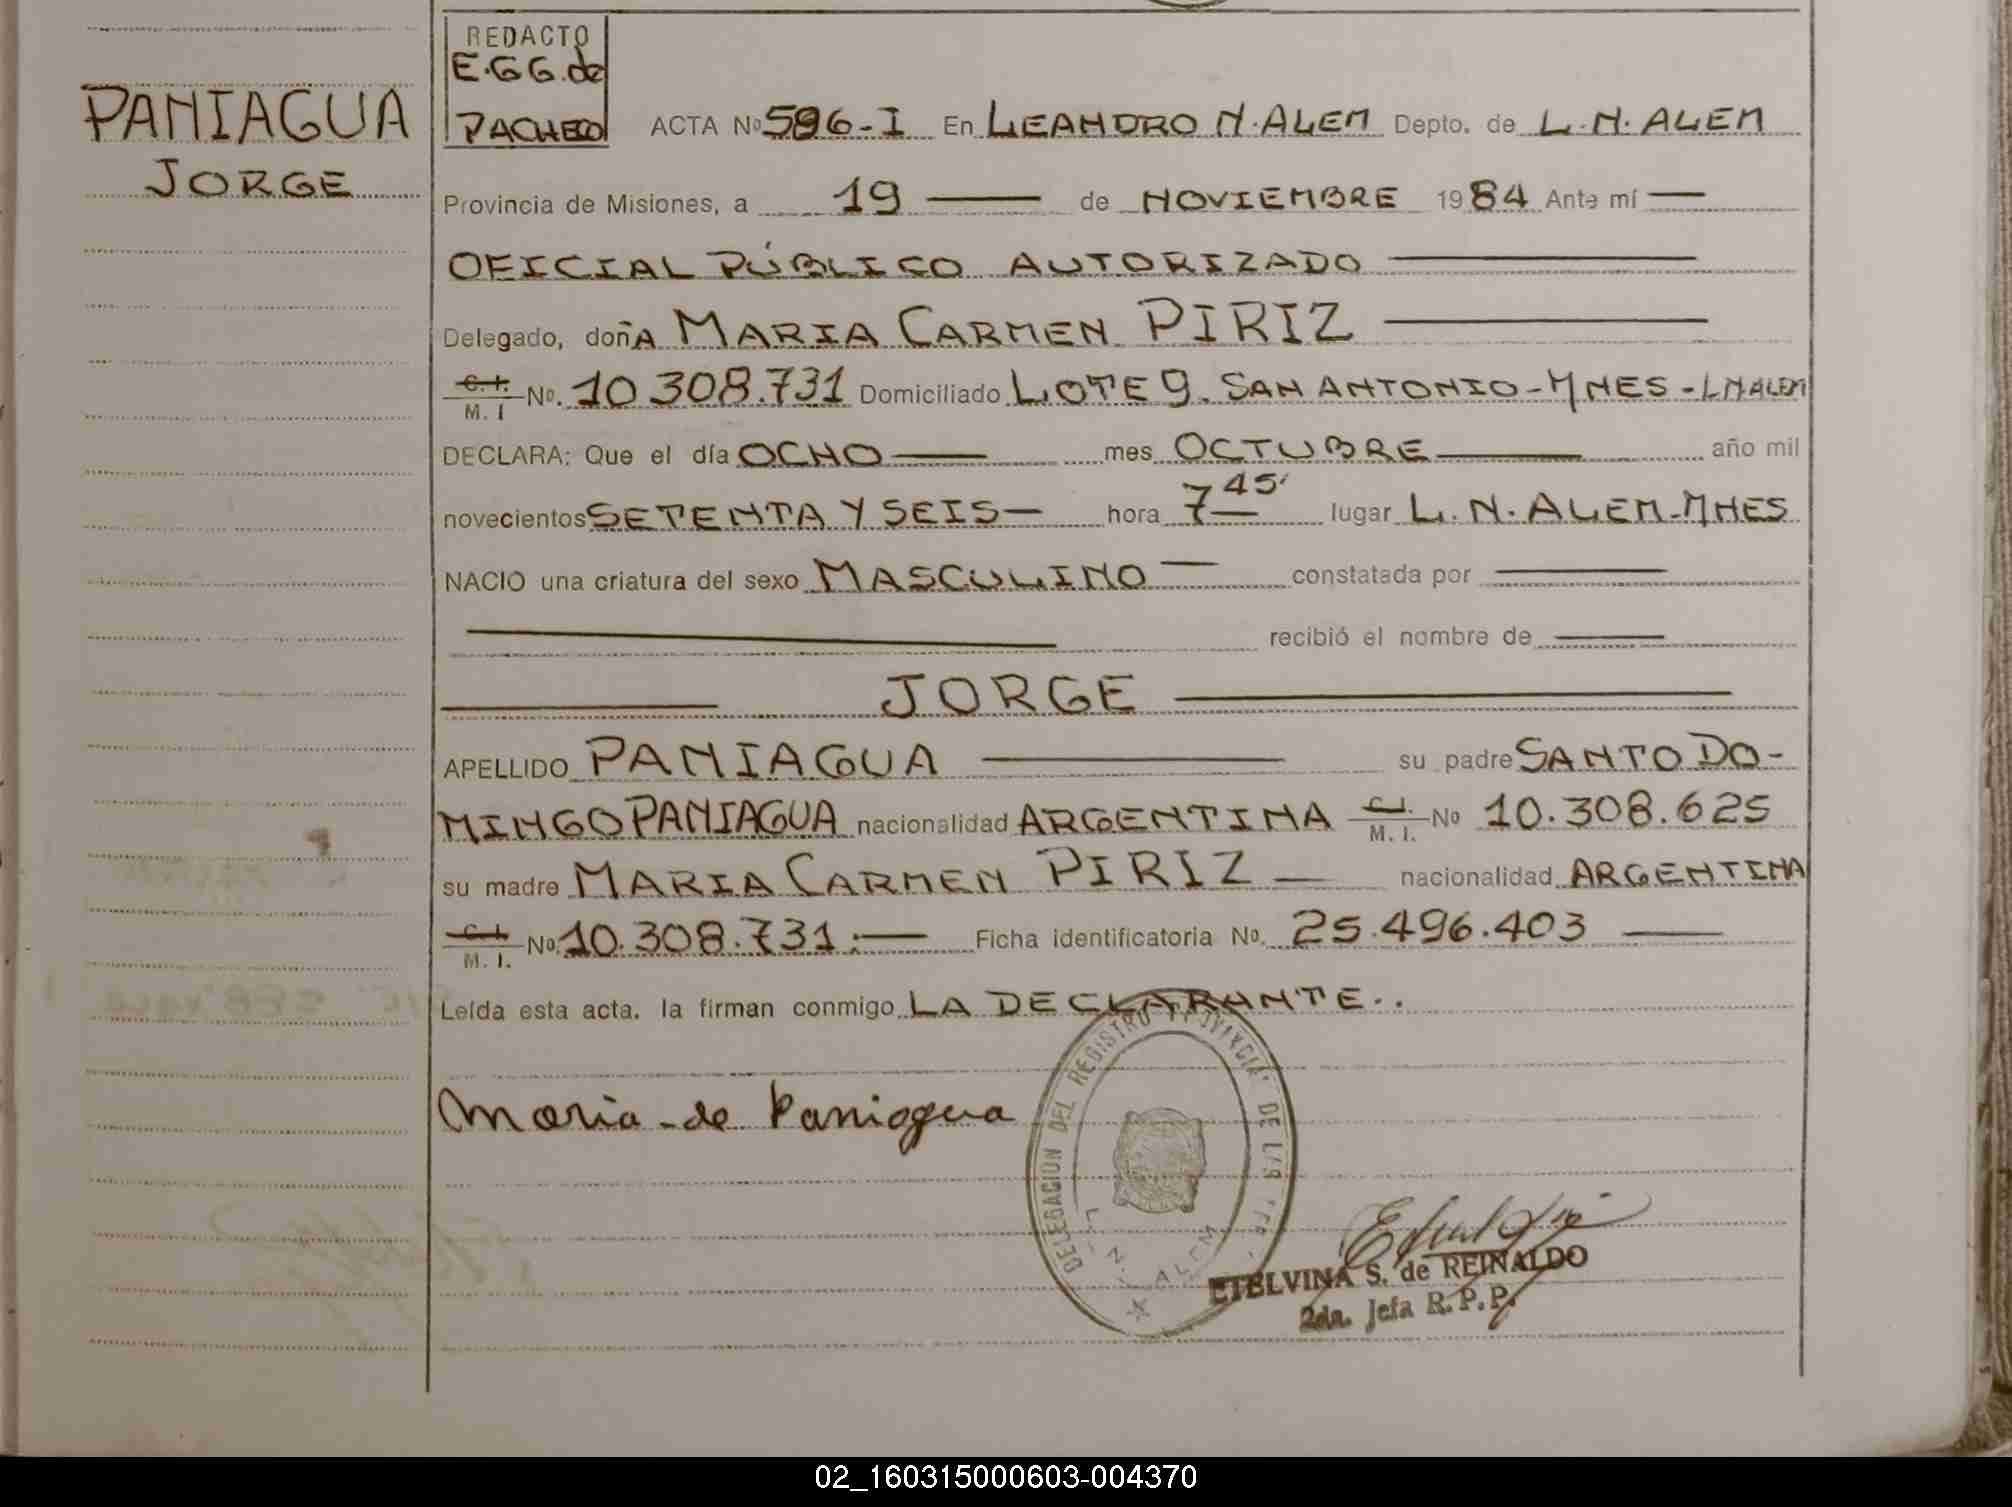 PANIAGUA
JORGE
REDACTO
E.G G. de
PACHECO
ACTA Nº 596-I En LEANDRO N. ALEM Depto. de L. N. ALEM
Provincia de Misiones, a 19 — de NOVIEMBRE 1984 Ante mí —
OFICIAL PÚBLICO AUTORIZADO —
Delegado, doñA MARIA CARMEN PIRIZ —
C. I. M. I Nº. 10.308.731 Domiciliado LOTE 9. SAN ANTONIO-MNES-LNALEM
DECLARA: Que el día OCHO — mes OCTUBRE — año mil
novecientos SETENTA Y SEIS — hora 7 45' lugar L. N. ALEM-MNES
NACIO una criatura del sexo MASCULINO — constatada por —
— recibió el nombre de —
— JORGE —
APELLIDO PANIAGUA — su padre SANTO DO-
MINGO PANIAGUA nacionalidad ARGENTINA C.I. M. I. Nº 10.308.625
su madre MARIA CARMEN PIRIZ — nacionalidad ARGENTINA
C. I. M. I. Nº 10.308.731.— Ficha identificatoria Nº. 25.496.403 —
Leída esta acta, la firman conmigo LA DECLARANTE..
Maria de Paniagua
DELEGACION DEL REGISTRO PROVINCIAL DE LAS
L. N. ALEM
ETELVINA S. de REINALDO
2da. Jefa R.P.P.
02_160315000603-004370